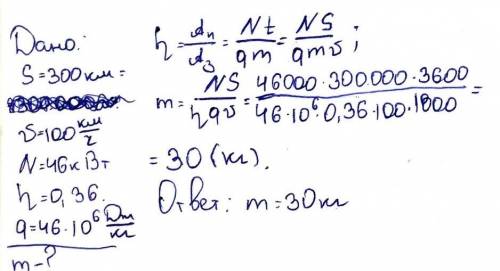 Дано:
S=300км=
v=100 км/г
N=46кВт
η=0,36.
q=46·10⁶ Дж/кг
m-?
η = Aп/Aз = Nt/qm = NS/qmv;
m = NS/ηqv = 46000·300000·3600/46·10⁶·0,36·100·1000 =
=30(кг).
Ответ: m=30кг